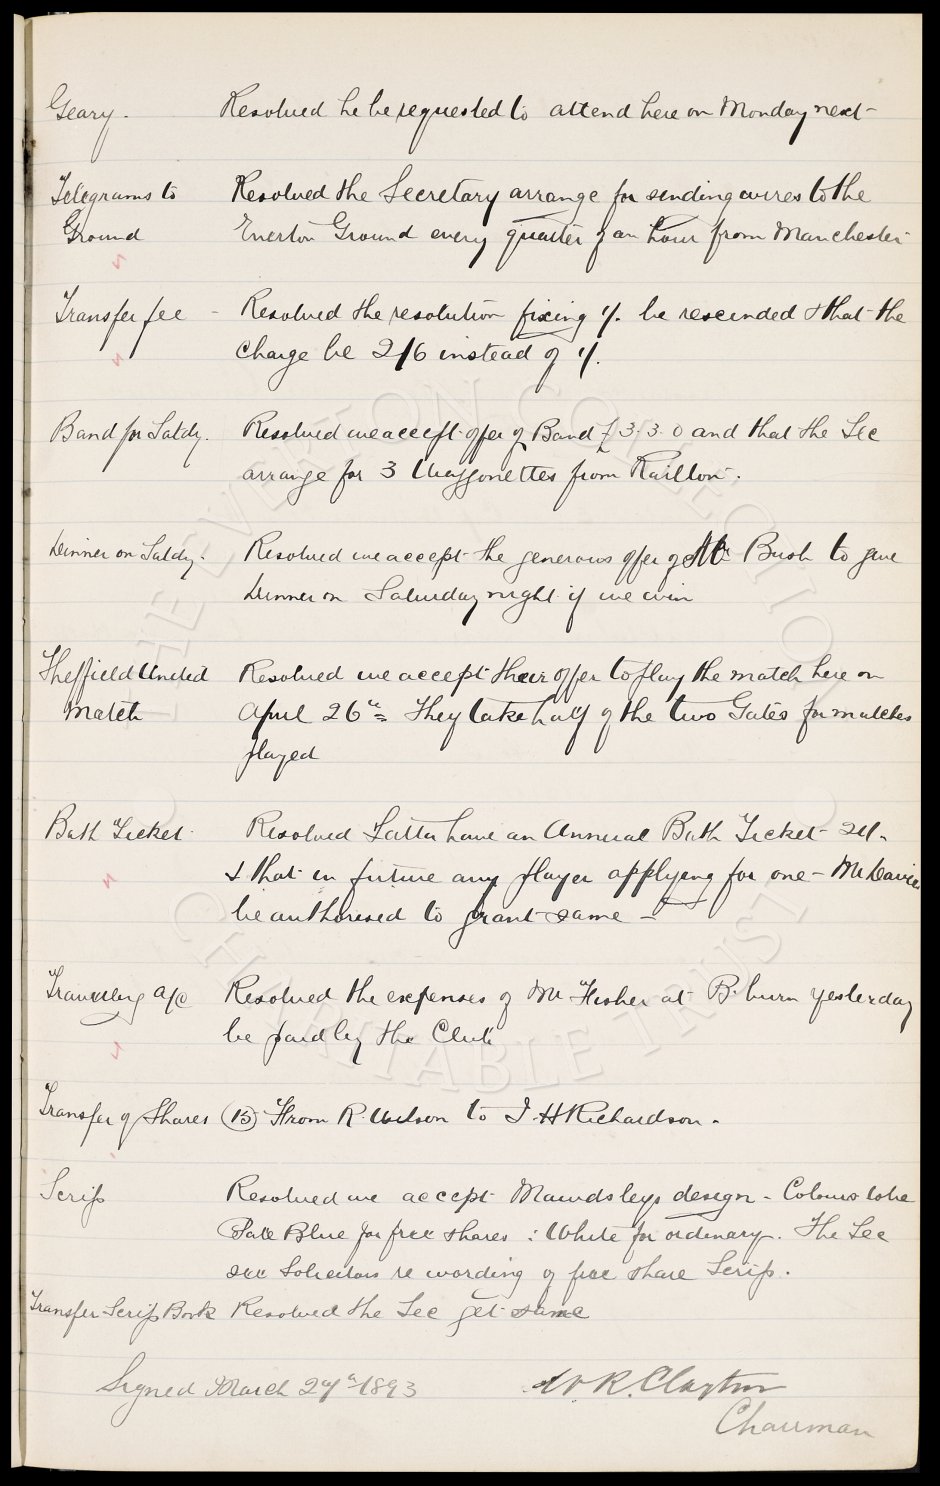 Geary. Resolved he be requested to attend here on Monday next
Telegrams to Resolved the Secretary arrange for sending wires to the
Ground Everton Ground every quarter of an hour from Manchester
Transfer fee - Resolved the resolution fixing 1/- be rescinded & that the
charge be 2/6 instead of 1/-
Band for Satdy. Resolved we accept offer of Band £3.3.0 and that the Sec
arrange for 3 Waggonettes from Railton.
Dinner on Satdy. Resolved we accept the generous offer of Mr Bush to give
Dinner on Saturday night if we win
Sheffield United Resolved we accept their offer to play the match here on
Match April 26th = They take half of the two Gates for matches
played
Bath Ticket Resolved Latta have an Annual Bath Ticket 21/-
& that in future any player applying for one - Mr Davies
be authorised to grant same -
Travelling a/c Resolved the expenses of Mr Fisher at B.burn yesterday
be paid by the Club
Transfer of Shares (15) From R Wilson to J H Richardson.
Scrip Resolved we accept Mawdsleys design - Colours to be
Pale Blue for free shares : White for ordinary. The Sec
see Solicitors re wording of free share Scrip.
Transfer Scrip Book Resolved the Sec get same
Signed March 27th 1893 W R. Clayton
Chairman
THE EVERTON COLLECTION
CHARITABLE TRUST